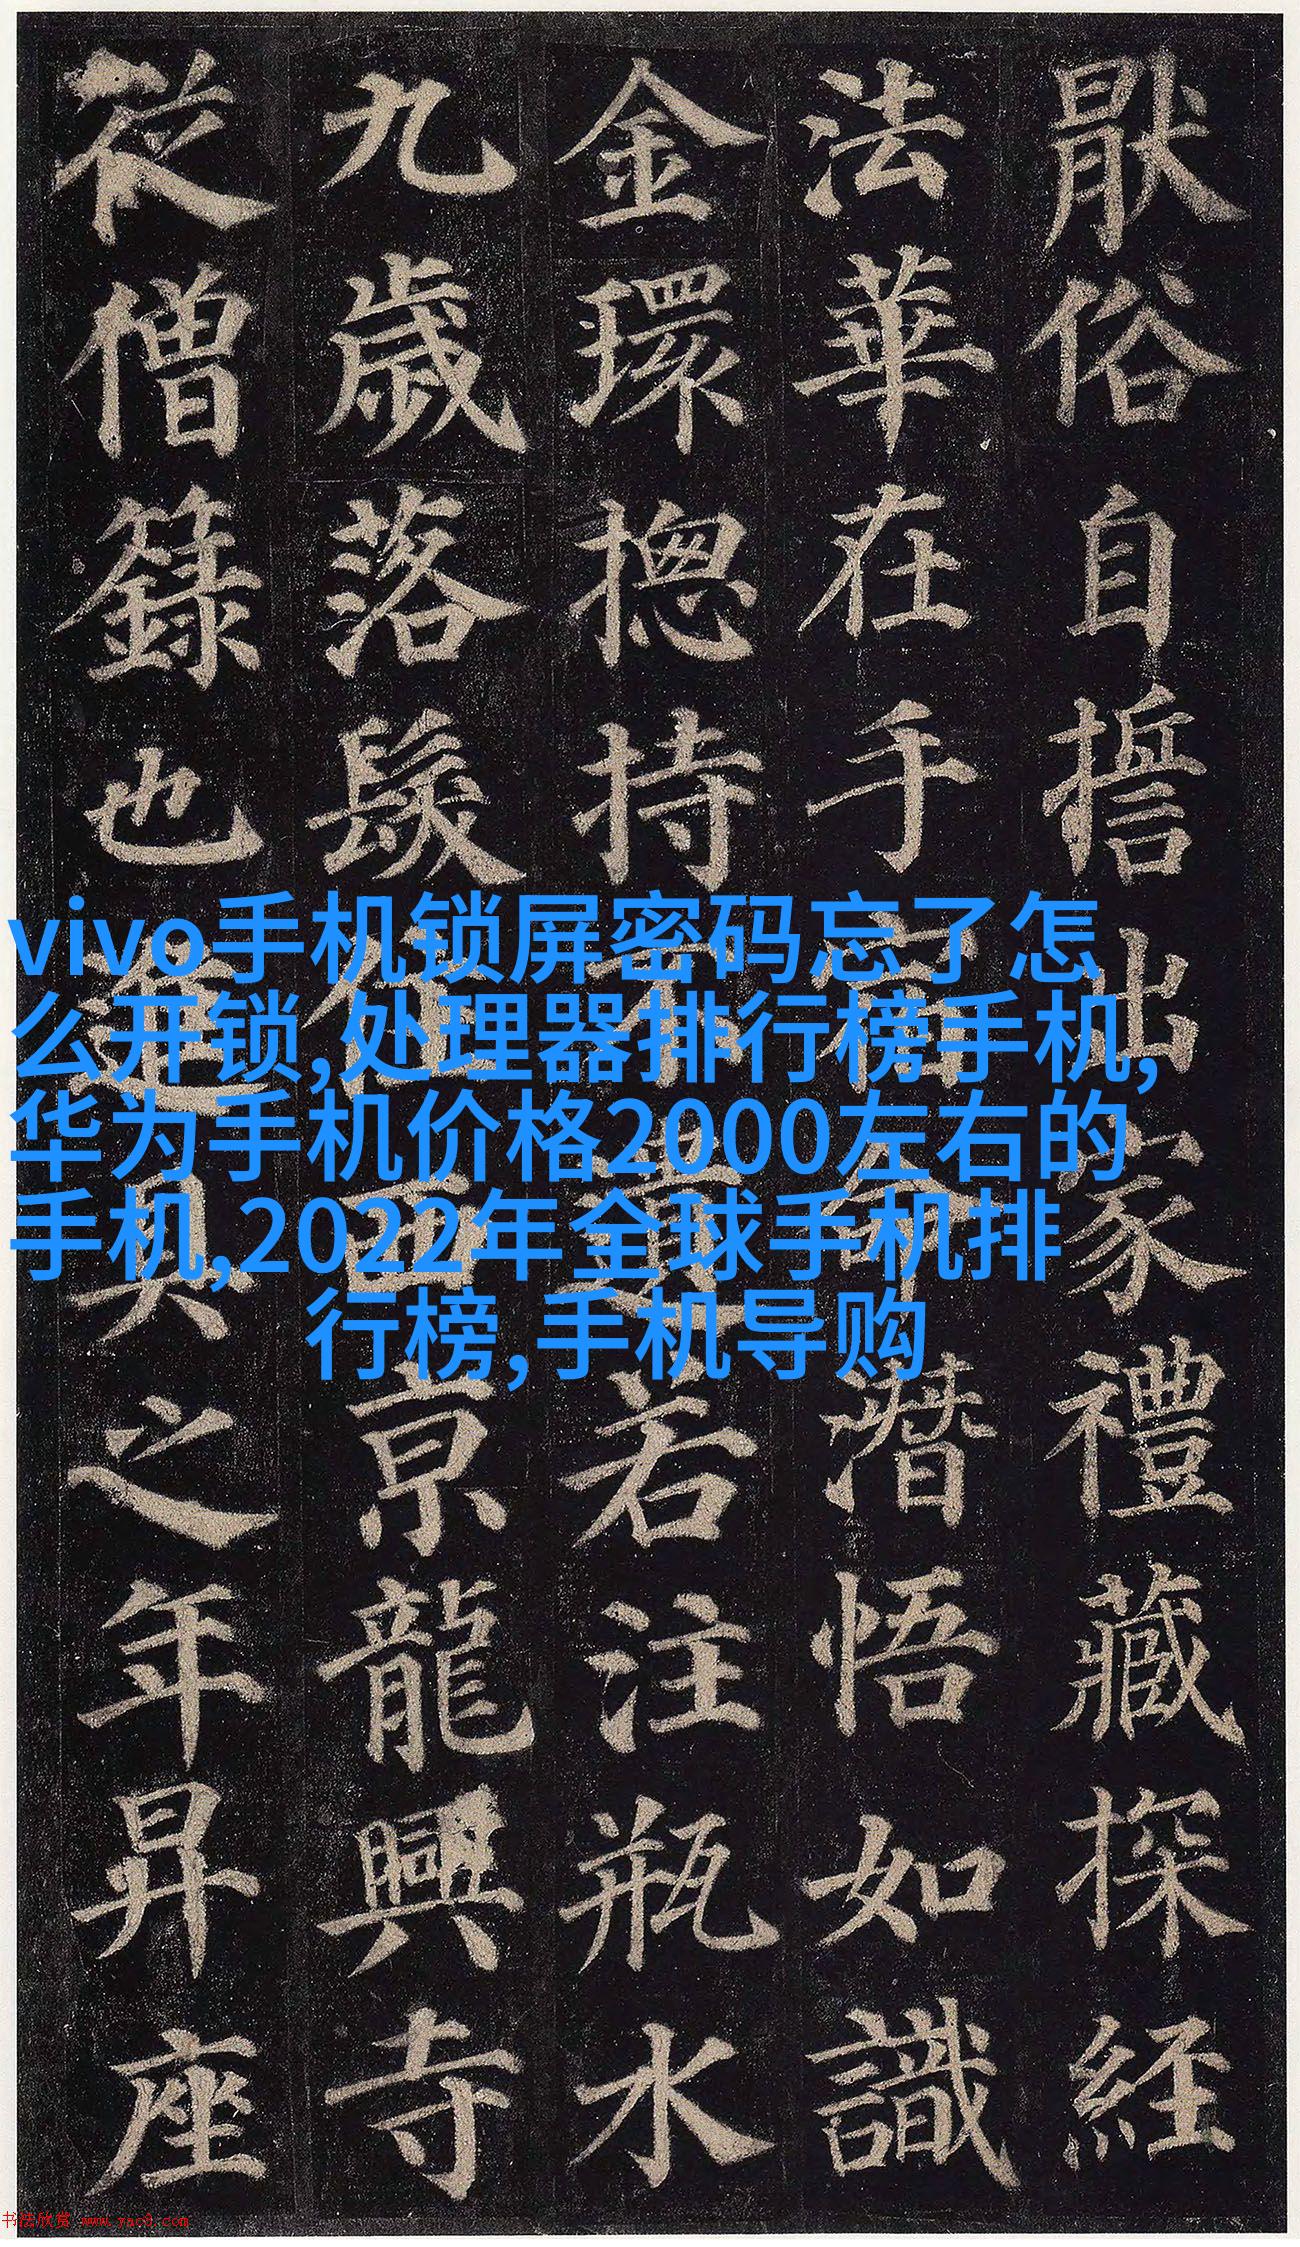 猒俗自誓出家禮藏探經
法華在手宿命潛悟如識
金環捴持不遺若注瓶水
九歲落髮住西京龍興寺
從僧籙也進具之年昇座
vivo手机锁屏密码忘了怎
么开锁,处理器排行榜手机,
华为手机价格2000左右的
手机,2022年全球手机排
行榜,手机导购
书法欣赏 www.yac8.com